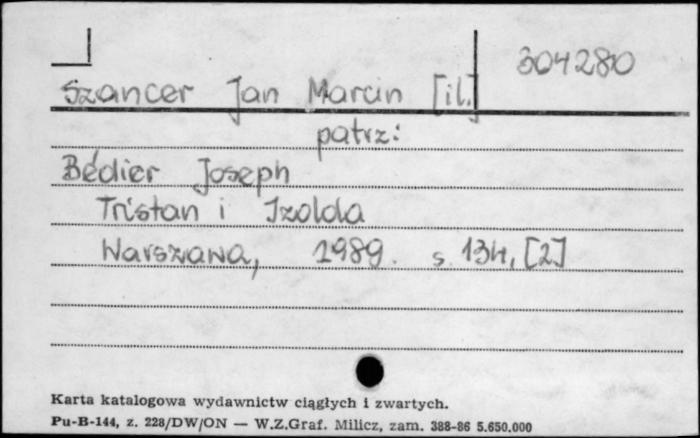 304280
Szancer Jan Marcin [il.]
patrz:
Bédier Joseph
Tristan i Izolda
Warszawa, 1989. s. 134, [2]
Karta katalogowa wydawnictw ciągłych i zwartych.
Pu-B-144, z. 228/DW/ON — W.Z.Graf. Milicz, zam. 388-86 5.650.000